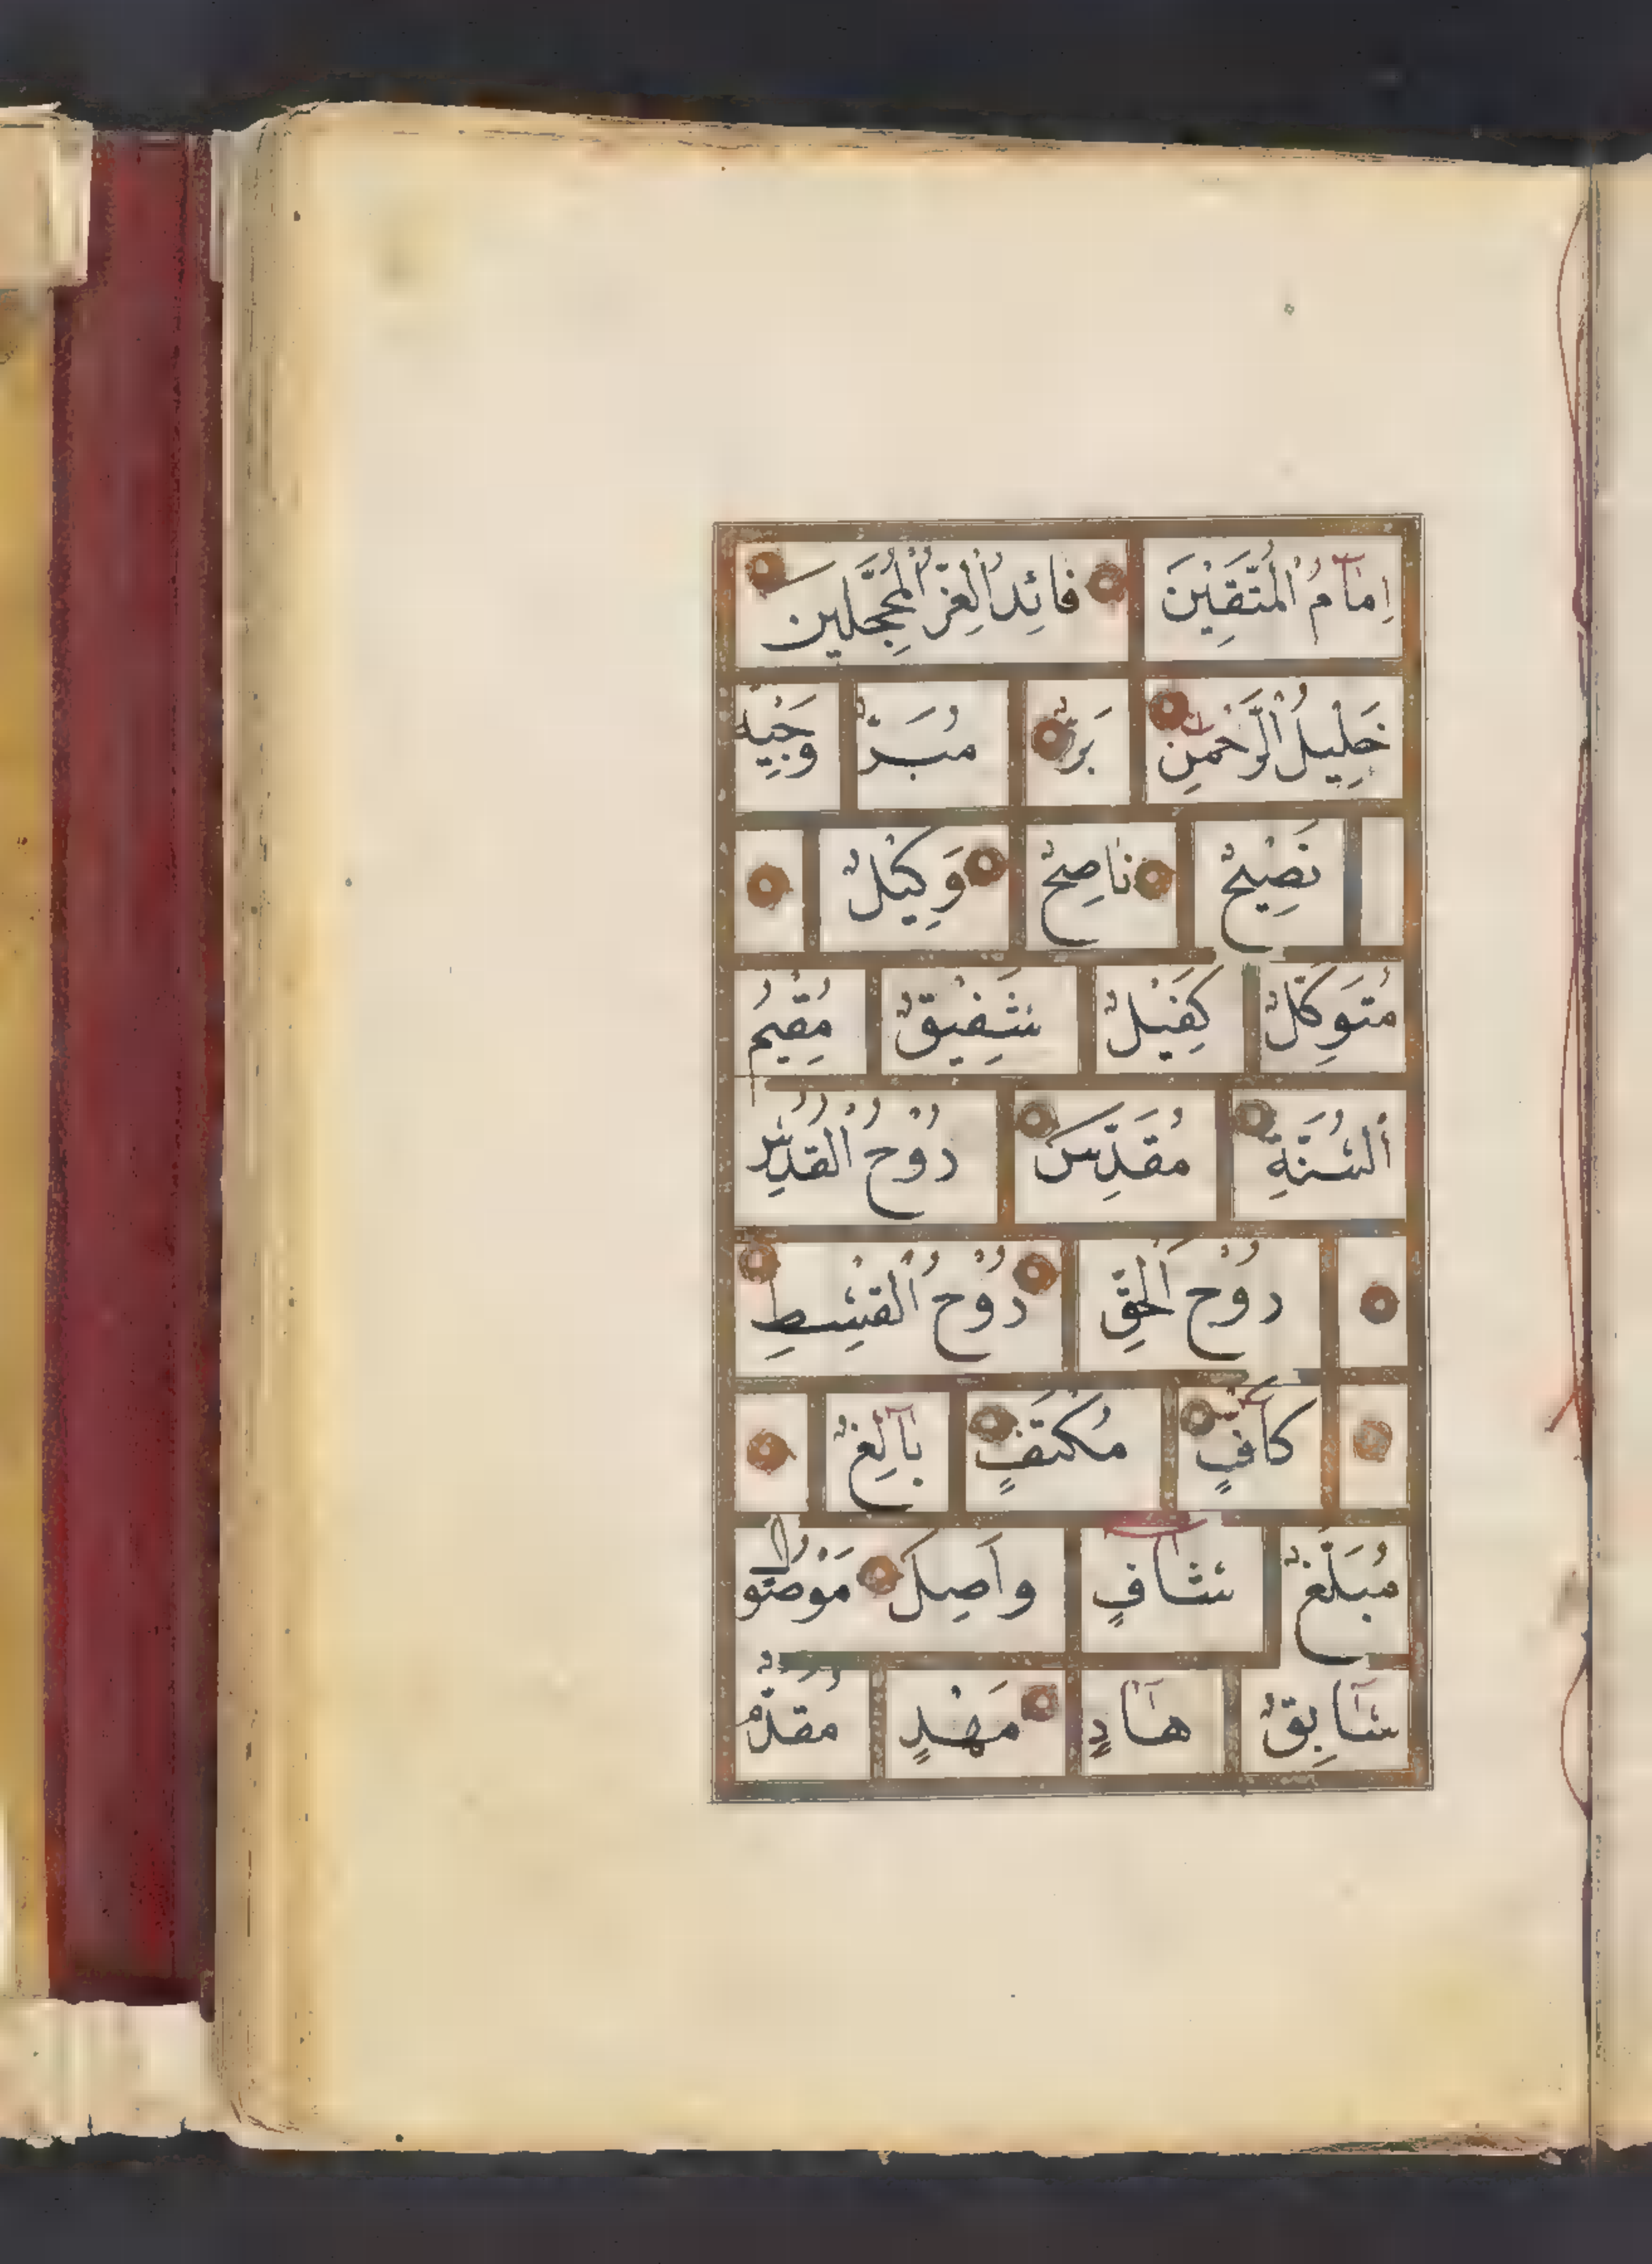 اِمَآمُ الْمُتَّقِيْنَ قَائِدُ الْغِرِّ الْمُحَجِّلِينَ
خَلِيْلُ الرَّحْمٰنِ بَرٌّ مُبَرٌّ وَجِيْهٌ
نَصِيْحٌ نَاصِحٌ وَكِيْلٌ
مُتَوَكِّلٌ كَفِيْلٌ شَفِيْقٌ مُقِيْمُ
السُّنَّةِ مُقَدَّسٌ رُوْحُ الْقُدُسِ
رُوْحُ الْحَقِّ رُوْحُ الْقِسْطِ
كَآفٍ مُكْتَفٍ بَآلِغٌ
مُبَلِّغٌ شَآفٍ وَاصِلٌ مَوْصُوْلٌ
سَآبِقٌ هَآدٍ مَهْدٍ مُقَدَّمٌ